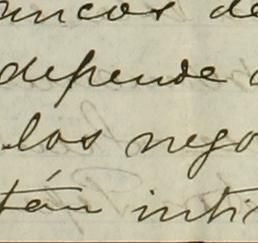 uncos de
depende
los nego
tán inti